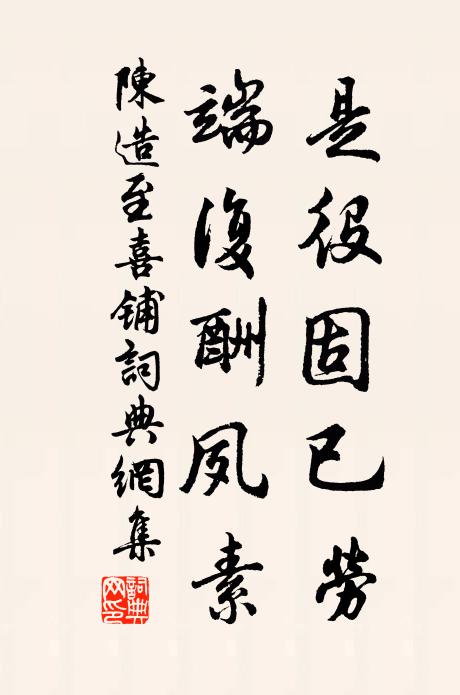 是役固已勞
端復酬夙素
陳造至喜鋪詞典網集
詞典网印